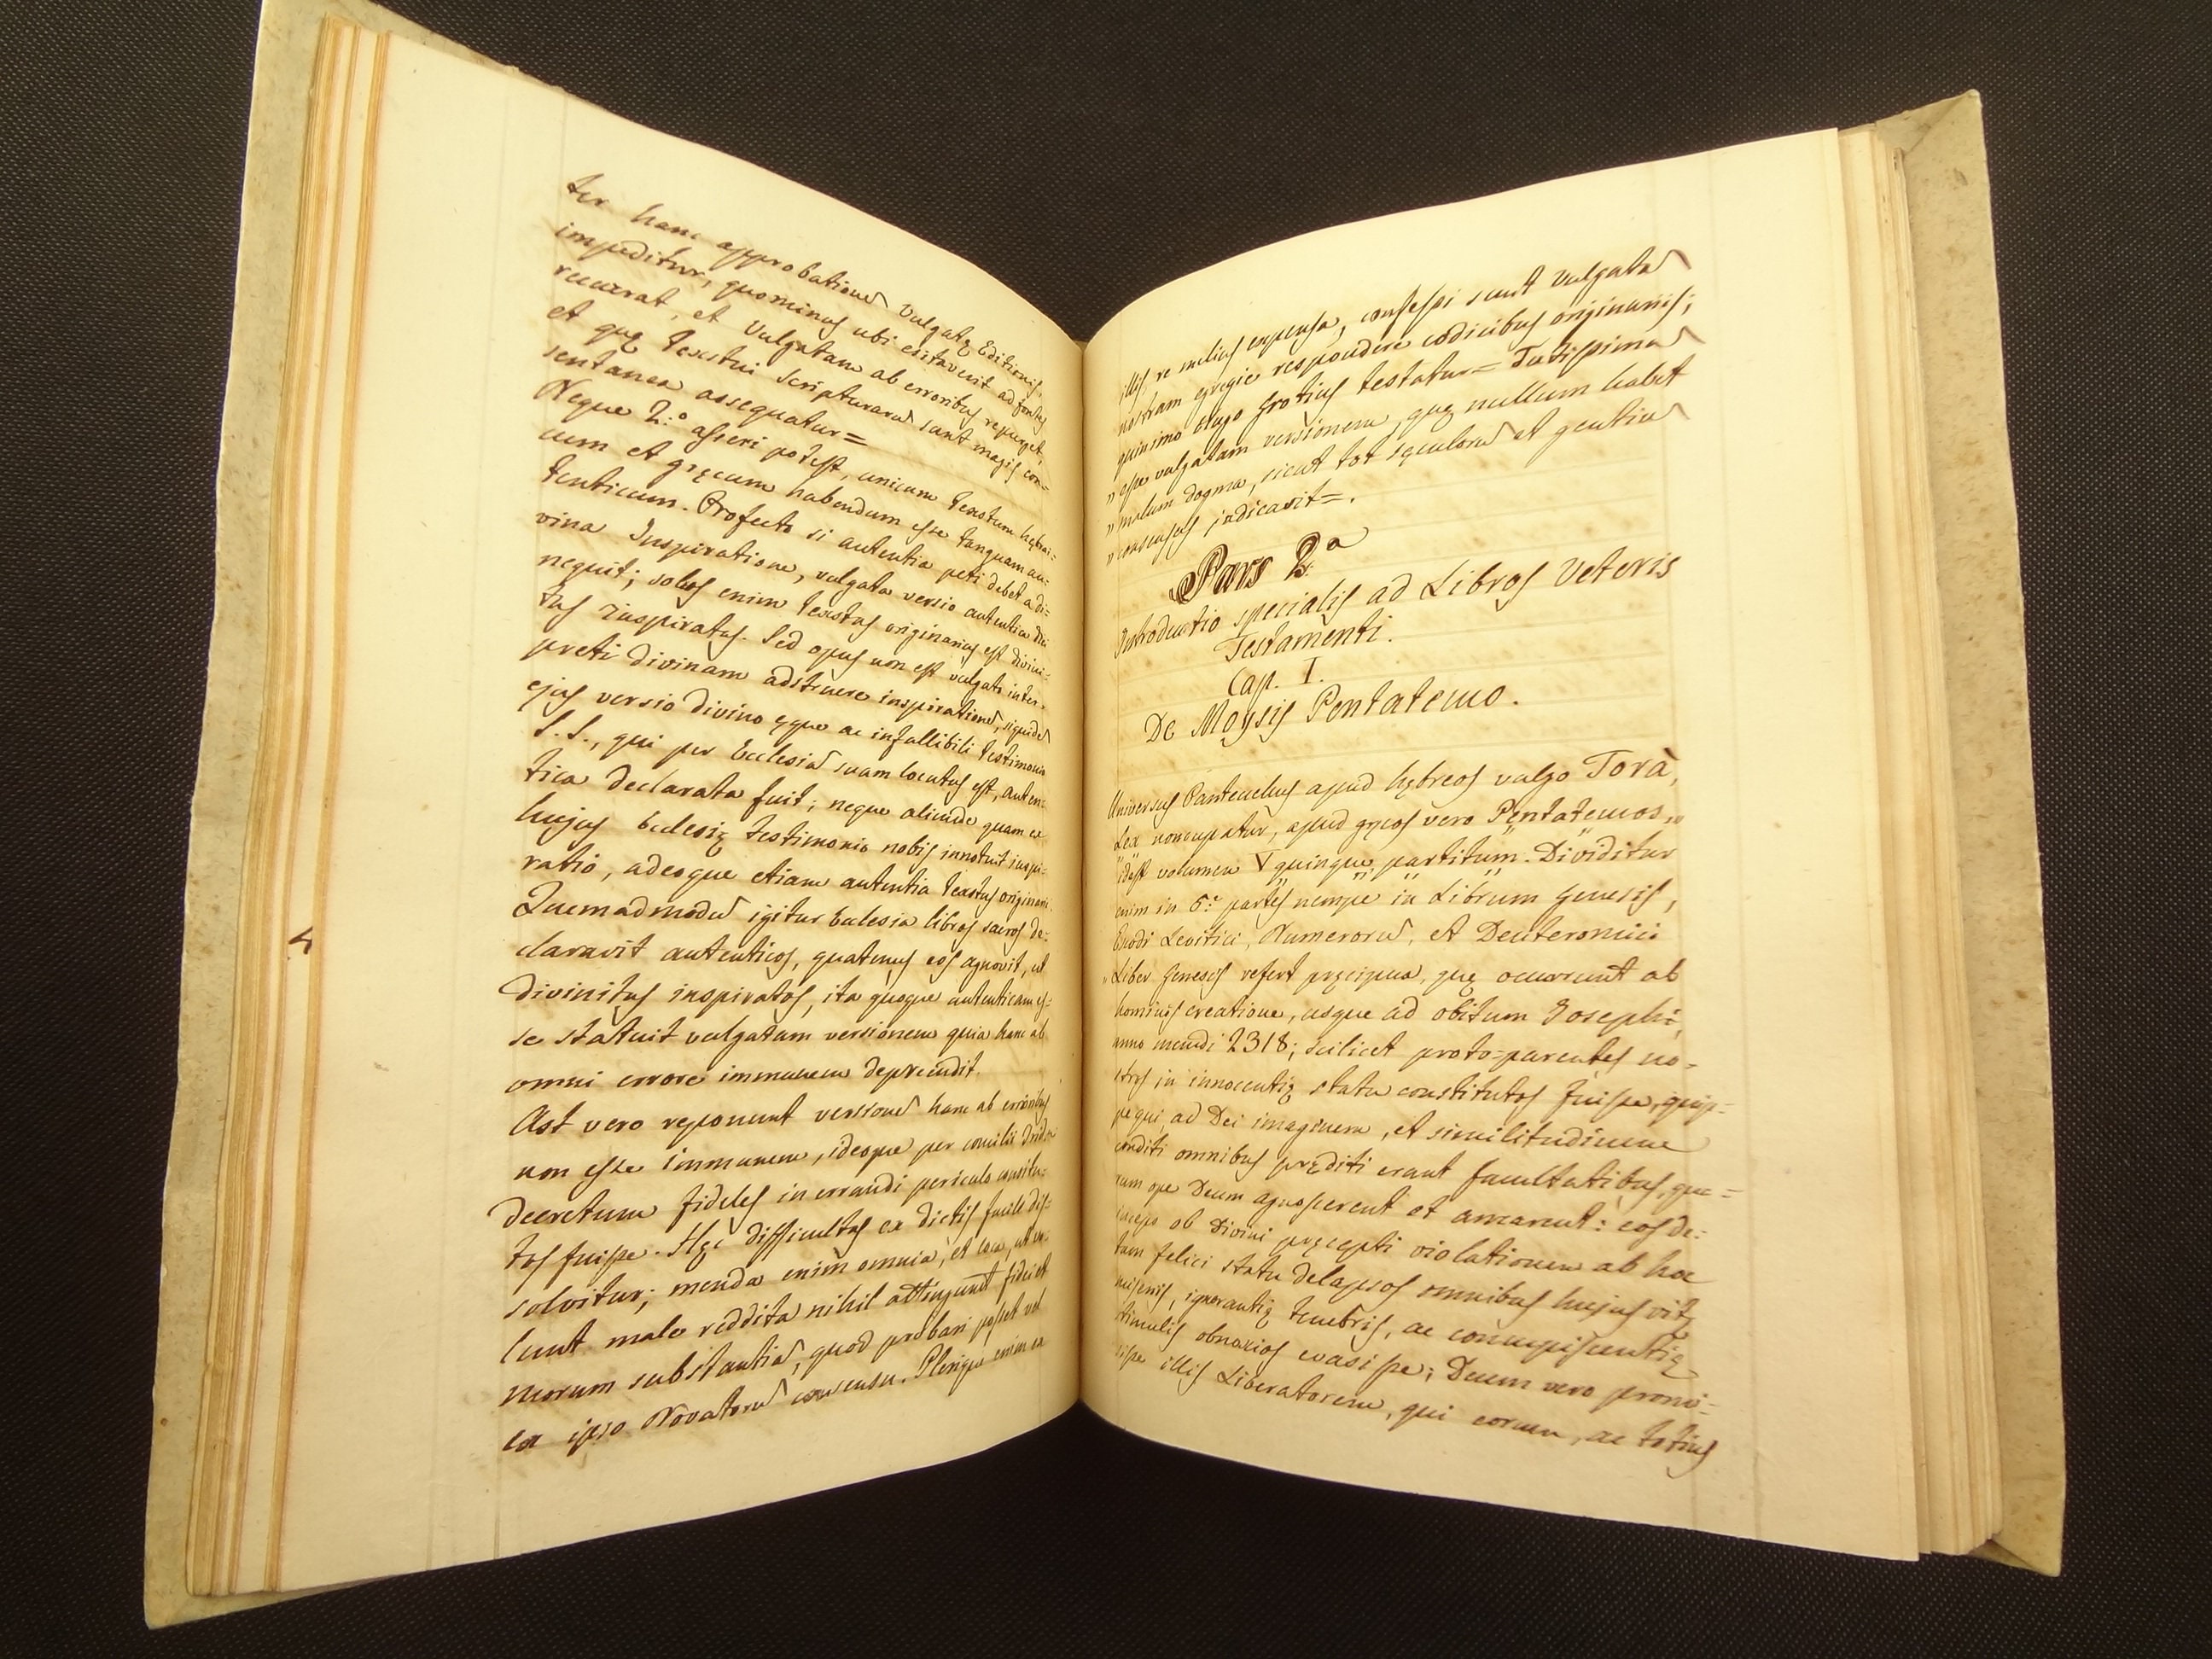 ter hanc approbationẽ Vulgatę Editionis,
impeditur, quominus ubi esitaverit ad fontes
recurrat, et Vulgatam ab erroribus repurget,
et quę textui scripturarũ sunt magis con=
sentanea assequatur=
Neque 2:º asseri potest, unicum textum hębrai=
cum et gręcum habendum esse tanquam au=
tenticum. Profecto si autentia peti debet a di=
vina Inspiratione, vulgata versio autentica dici
nequit; solus enim textus originarius est divini=
tus inspiratus. Sed opus non est vulgato inter=
preti divinam adstruere inspirationẽ, siquidẽ
ejus versio divino ęque ac infallibili testimonio
S. S., qui per Ecclesiã suam locutus est, auten=
tica declarata fuit; neque aliunde quam ex
hujus Ecclesię testimonio nobis innotuit inspi=
ratio, adeoque etiam autentia textus originarii.
Quemadmodũ igitur Ecclesia libros sacros de=
claravit autenticos, quatenus eos agnovit, ut
divinitus inspiratos, ita quoque autenticam es=
se statuit vulgatam versionem quia hanc ab
omni errore immunem deprendit.
Ast vero reponunt versionẽ hanc ab erroribus
non esse immunem, ideoque per concilii Tridni
decretum fideles in errandi periculo constitu=
tos fuisse. Hęc difficultas ex dictis facile dis=
solvitur; menda enim omnia, et loca, ut vo=
lunt male reddita nihil attingunt fidei et
morum substantiã, quod probari posset vel
ex ipso Novatorũ consensu. Plerique enim ex
illis re melius expensa, confessi sunt vulgatã
nostram egregie respondere codicibus originariis;
quinimo Hugo Grotius testatur= Tutissimã
" esse vulgatam versionem, quę nullum habet
" malum dogma, sicut tot sęculorũ et gentiũ
" consensus judicavit=.
Pars 2.ª
Introductio specialis ad Libros Veteris
Testamenti.
Cap. I.
De Moysis Pentateuco.
Universus Panteuchus apud hębreos vulgo Torà,
Lex noncupatur, apud gręcos vero Pentateucos,
idest volumen V quinque partitum. Dividitur
enim in 5.e partes nempe in Librum Genesis,
Exodi Levitici, Numerorũ, et Deuteromii
Liber Geneseos refert pręcipua, quę occurrunt ab
hominis creatione, usque ad obitum Josephi,
anno mundi 2318; scilicet proto=parentes no=
stros in innocentię statu constitutos fuisse, quip=
pe qui ad Dei imaginem, et similitudinem
conditi omnibus pręditi erant facultatibus, qua=
rum ope Deum agnoscerent et amarent: eos de=
inceps ob Divini pręcepti violationem ab hoc
tam felici statu delapsos omnibus hujus vitę
miseriis, ignorantię tenebris, ac concupiscentię
stimulis obnoxios evasisse; Deum vero promi=
sisse illis Liberatorem, qui eorum, ac totius